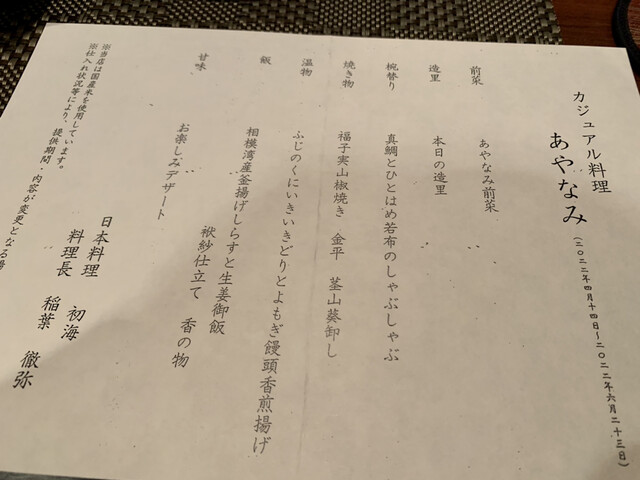 カジュアル料理
あやなみ
(二〇二二年四月十四日〜二〇二二年六月二十三日)
前菜 あやなみ前菜
造里 本日の造里
椀替り 真鯛とひとはめ若布のしゃぶしゃぶ
焼き物 福子実山椒焼き 金平 茎山葵卸し
温物 ふじのくにいきいきどりとよもぎ饅頭香煎揚げ
飯 相模湾産釜揚げしらすと生姜御飯
袱紗仕立て 香の物
甘味 お楽しみデザート
日本料理 初海
料理長 稲葉 徹弥
※当店は国産米を使用しています。
※仕入れ状況等により、提供期間・内容が変更となる場